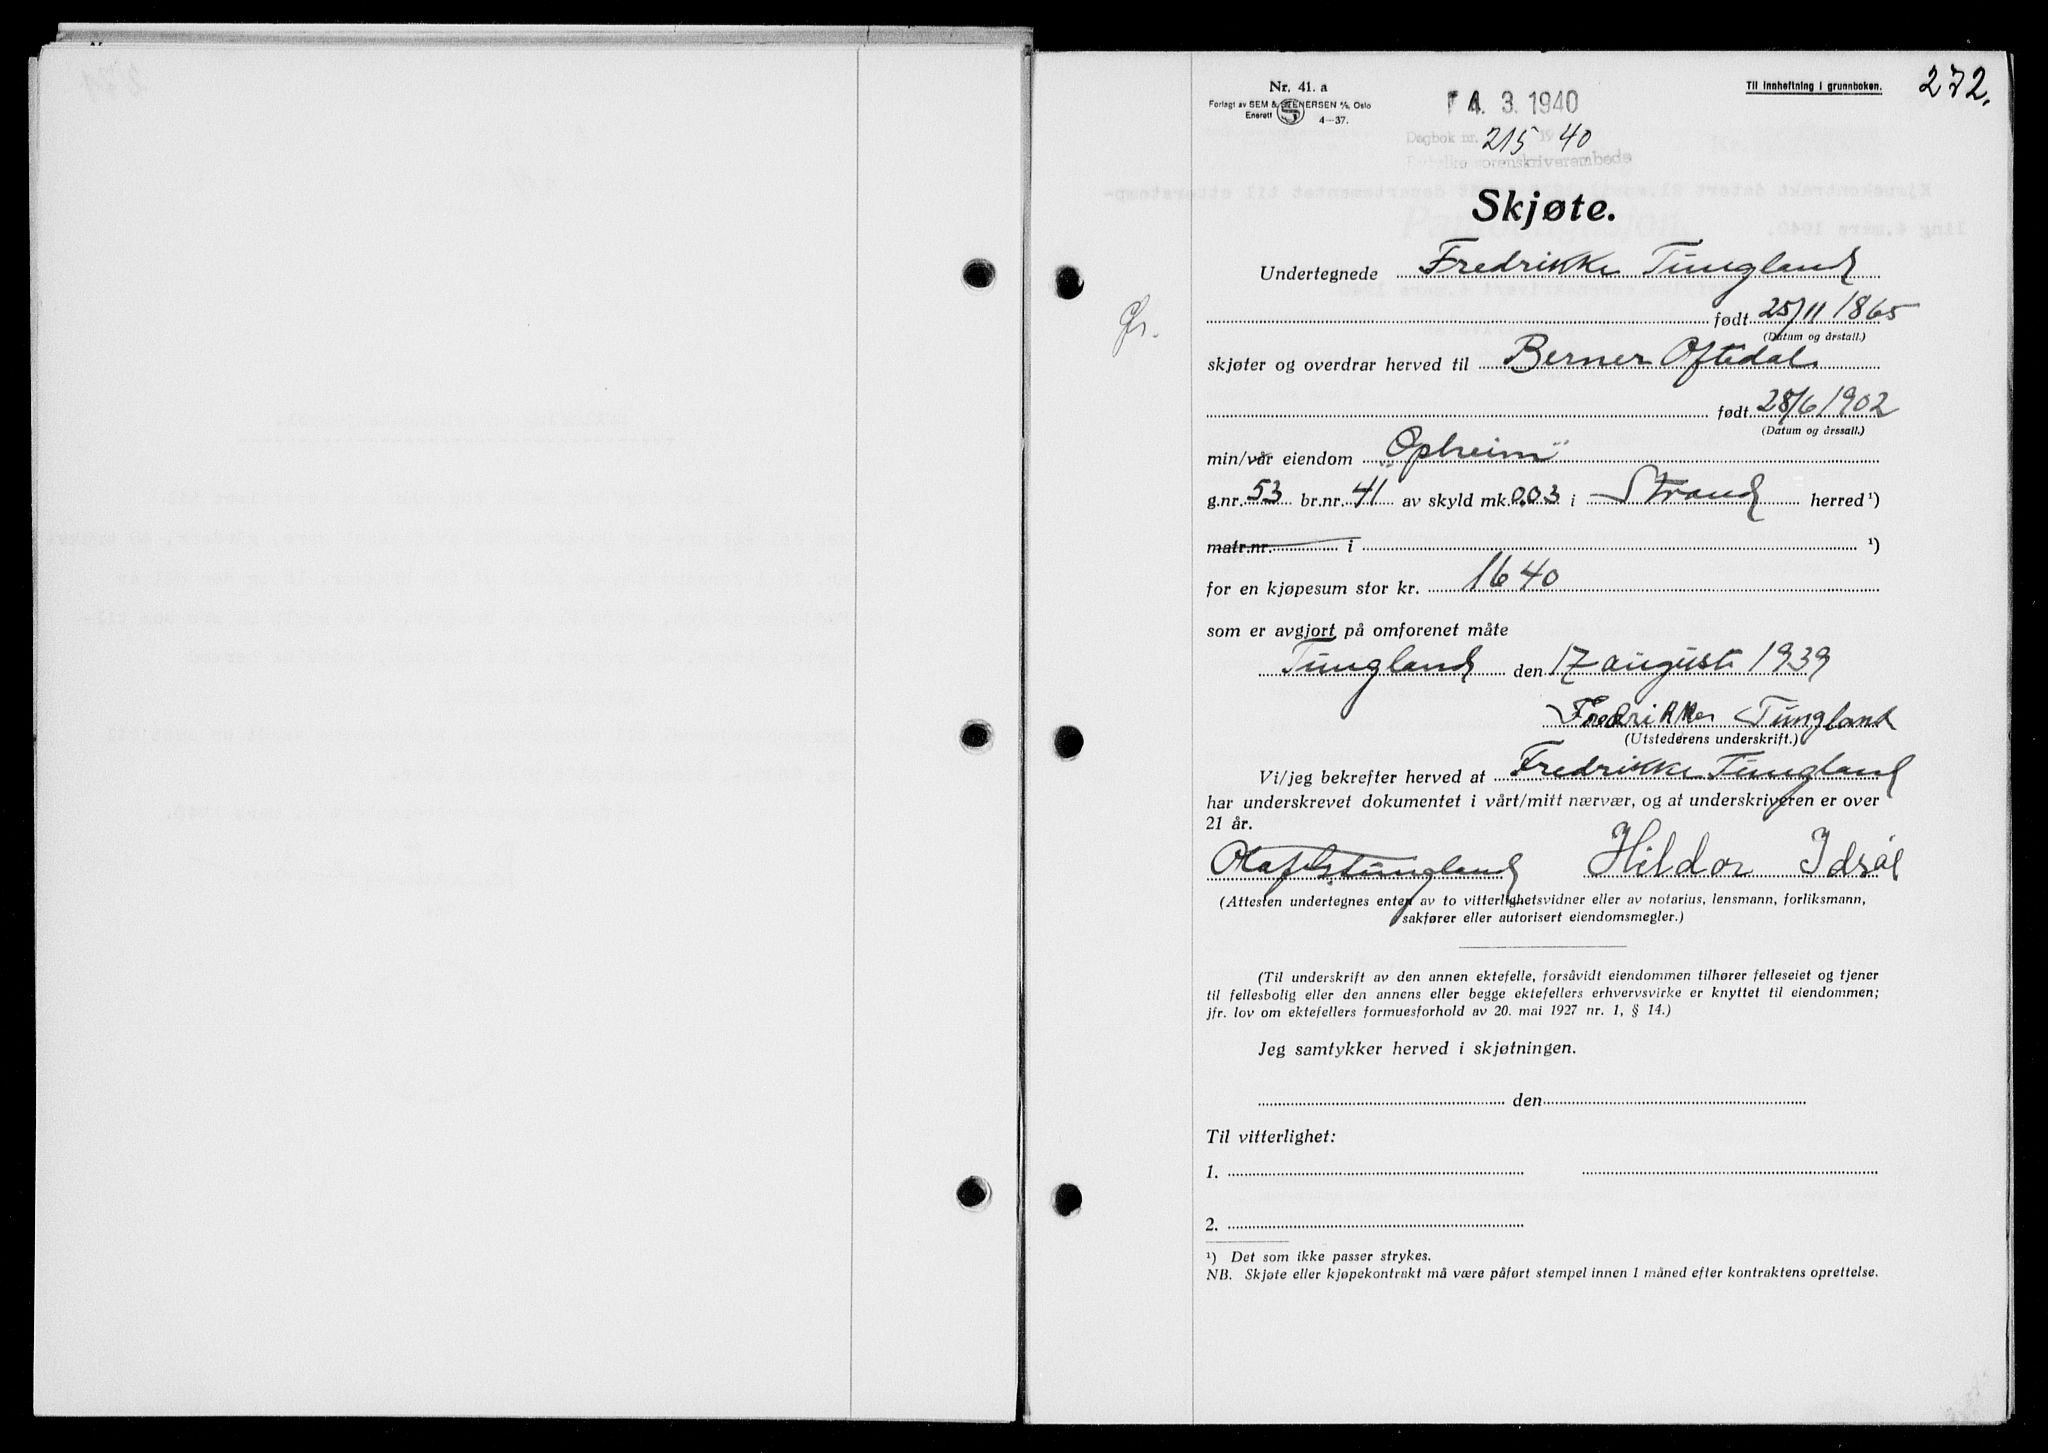 272.
Nr. 41. a
Forlagt av SEM & STENERSEN A/S, Oslo
Enerett 4—37.
4. 3. 1940
Til innheftning i grunnboken.
Dagbok nr. 215 1940
sorenskriverembede
Skjøte.
Undertegnede Fredrikke Tungland
født 25/11 1865
(Datum og årstall.)
skjøter og overdrar herved til Berner Oftedal
født 28/6 1902
(Datum og årssall.)
min/vår eiendom „Opheim"
g.nr. 53 br.nr. 41 av skyld mk. 0.03 i Strand herred ¹)
matr.nr. i ¹)
for en kjøpesum stor kr. 1640
som er avgjort på omforenet måte
Tungland den 17 august 1939
Fredrikke Tungland
(Utstederens underskrift.)
Vi/jeg bekrefter herved at Fredrikke Tungland
har underskrevet dokumentet i vårt/mitt nærvær, og at underskriveren er over
21 år.
Olaf Tungland Hildor Idsøe
(Attesten undertegnes enten av to vitterlighetsvidner eller av notarius, lensmann, forliksmann,
sakfører eller autorisert eiendomsmegler.)
(Til underskrift av den annen ektefelle, forsåvidt eiendommen tilhører felleseiet og tjener
til fellesbolig eller den annens eller begge ektefellers erhvervsvirke er knyttet til eiendommen;
jfr. lov om ektefellers formuesforhold av 20. mai 1927 nr. 1, § 14.)
Jeg samtykker herved i skjøtningen.
den
Til vitterlighet:
1.
2.
¹) Det som ikke passer strykes.
NB. Skjøte eller kjøpekontrakt må være påført stempel innen 1 måned efter kontraktens oprettelse.